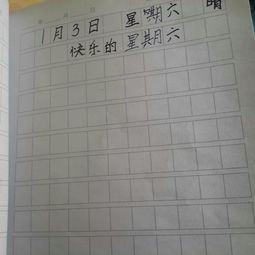 年 月 日
1月3日 星期六 晴
快乐的星期六